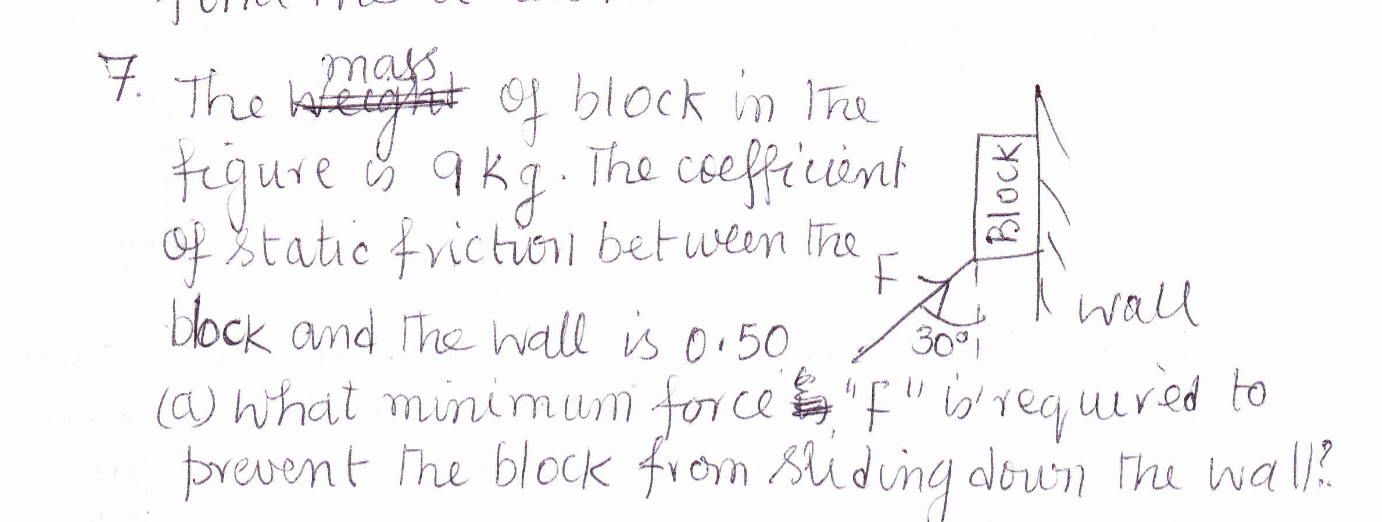 7. The mass of block in the
figure is 9 kg. The coefficient
of static friction between the
block and the wall is 0.50
(a) What minimum force "F" is required to
prevent the block from sliding down the wall?
Block
F
30°
wall